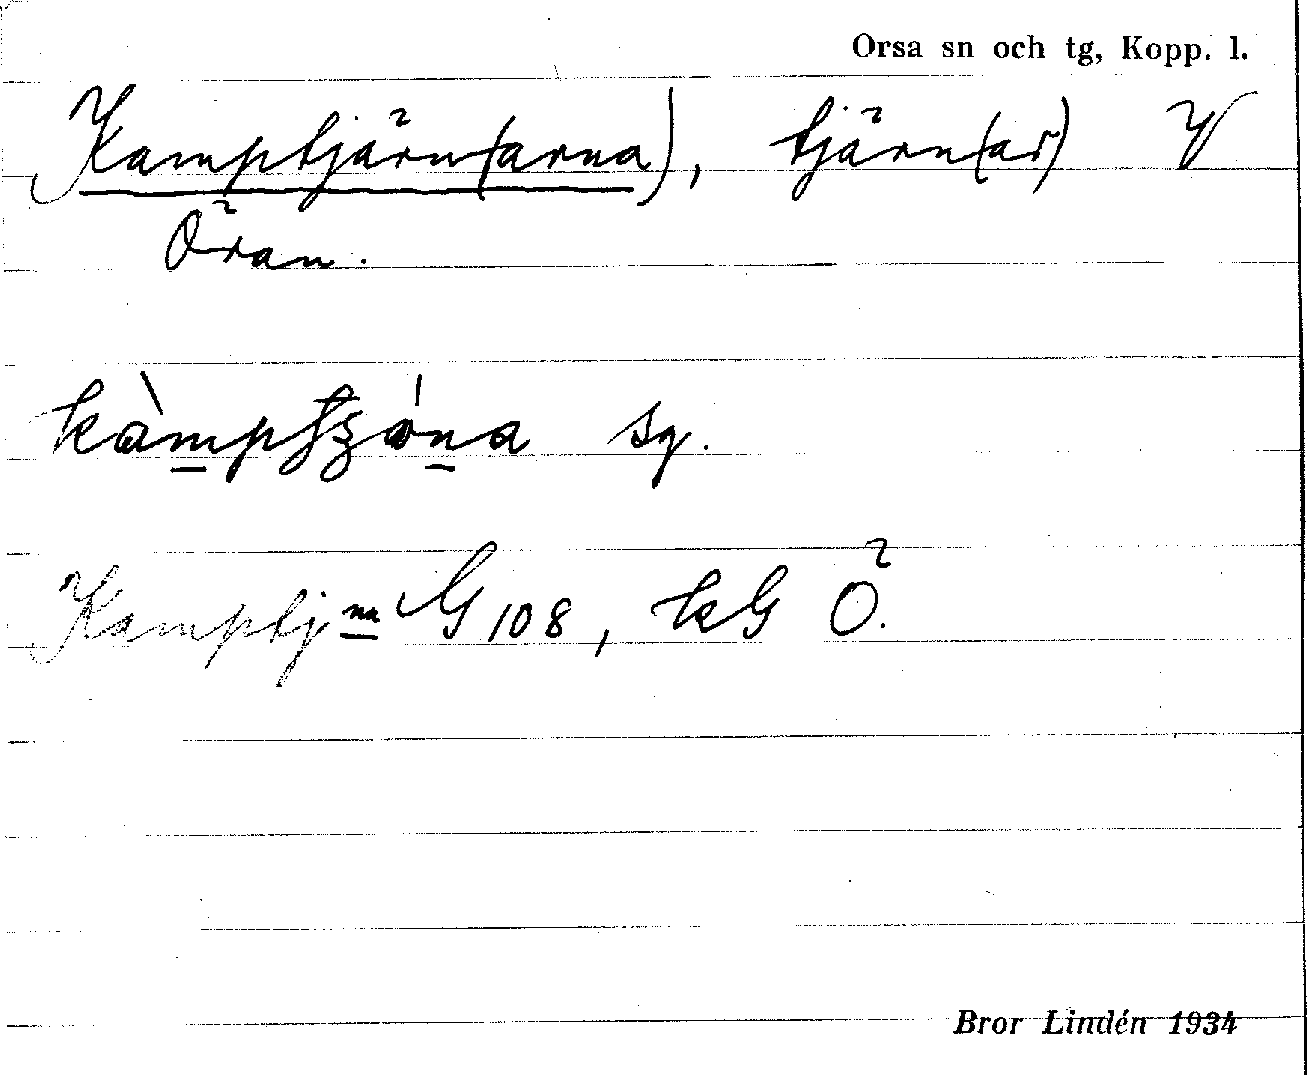 Orsa sn och tg, Kopp. l.
Kamptjärn(arna), tjärn(ar) V
Öran.
sg.
Kamptj-na G 108, kG Ö.
Bror Lindén 1934